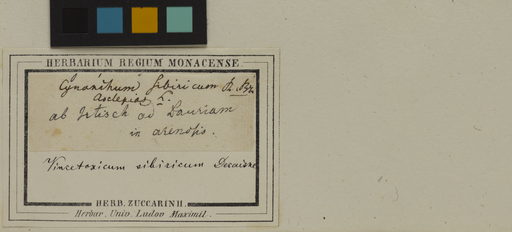 HERBARIUM REGIUM MONACENSE.
Cynanchum sibiricum R. Br.
Asclepias L.
ab Irtisch ad Dauriam
in arenosis.
Vincetoxicum sibiricum Decaisne
HERB. ZUCCARINII.
Herbar. Univ. Ludov. Maximil.